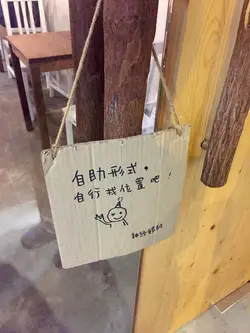 自助形式，
自行找位置吧！